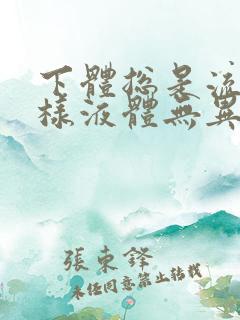 下體總是流
樣液體無異
張東鋒
未經同意禁止轉載